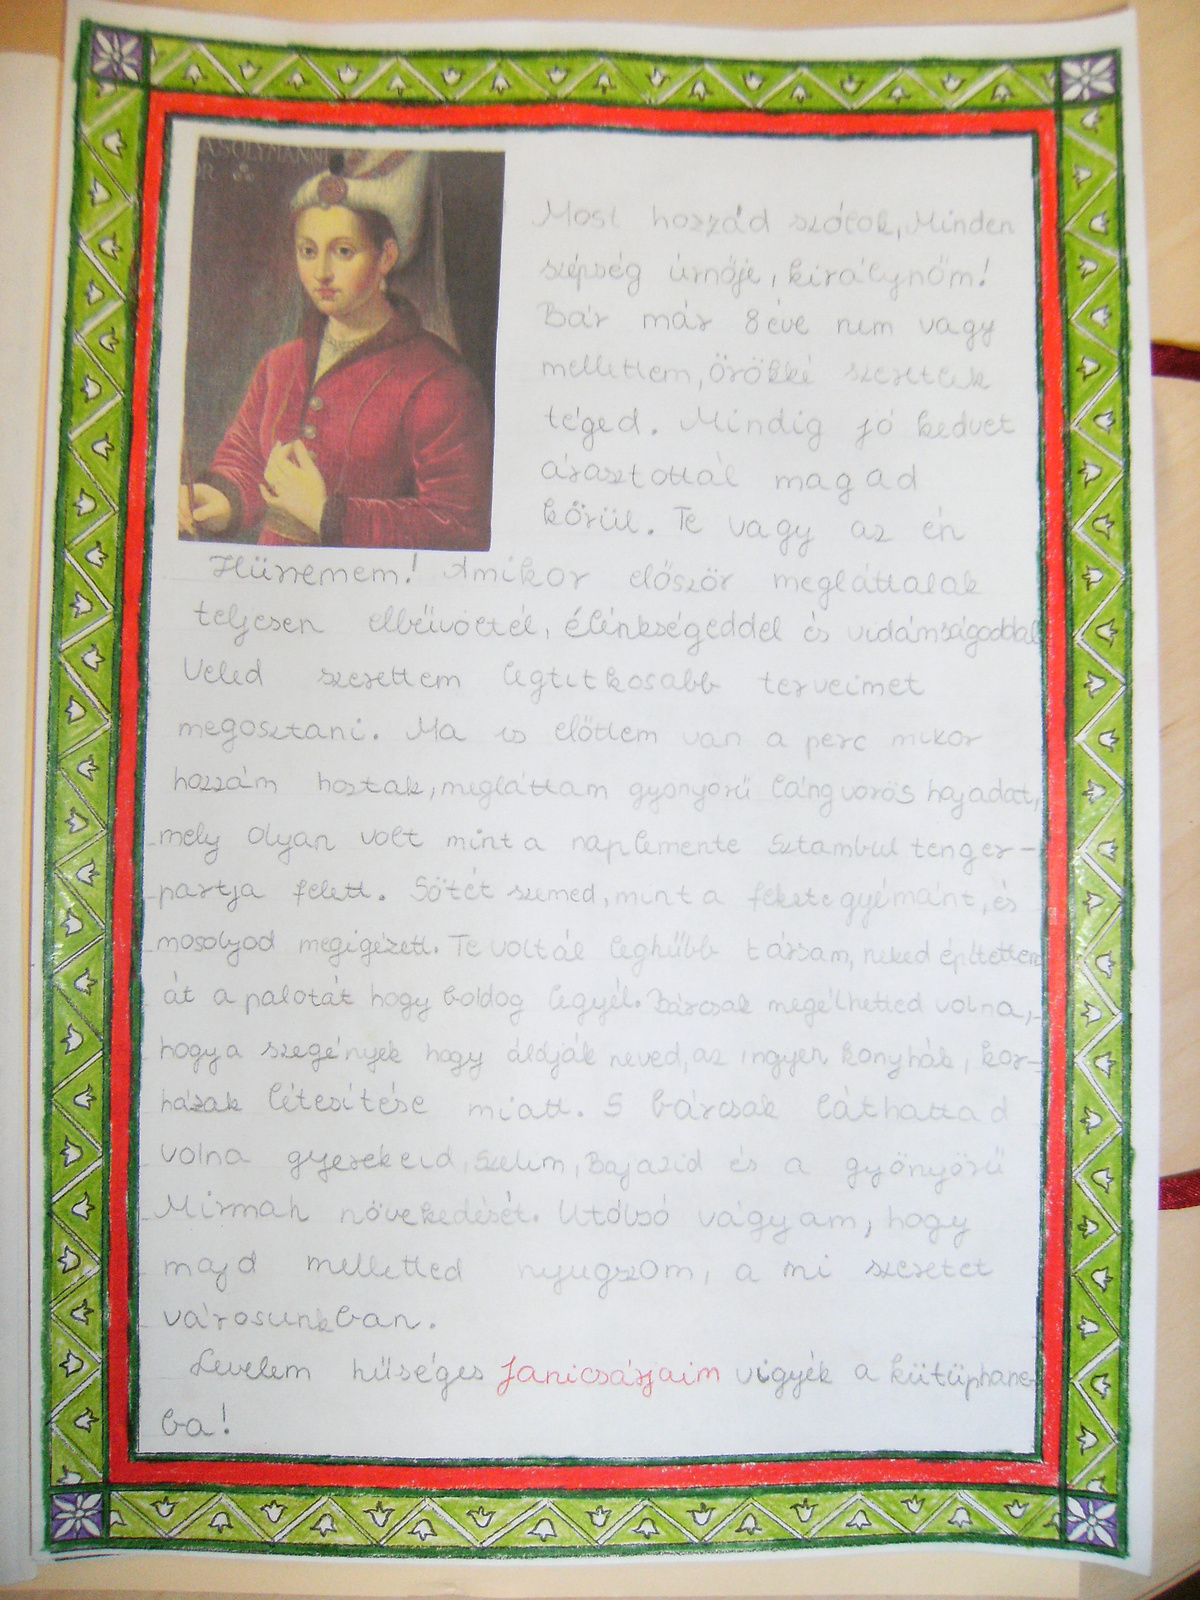 ASOLYMANNI
OR
Most hozzád szólok, Minden
szépség úrnője, királynőm!
Bár már 8 éve nem vagy
mellettem, örökké szeretlek
téged. Mindig jó kedvet
árasztottál magad
körül. Te vagy az én
Hürremem! Amikor először megláttalak
teljesen elbűvöltél, élénkségeddel és vidámságoddal
Veled szerettem legtitkosabb terveimet
megosztani. Ma is előttem van a perc mikor
hozzám hoztak, megláttam gyönyörű lángvörös hajadat,
mely olyan volt mint a naplemente Sztambul tenger-
partja felett. Sötét szemed, mint a fekete gyémánt, és
mosolyod megigézett. Te voltál leghűbb társam, neked építettem
át a palotát hogy boldog legyél. Bárcsak megélhetted volna,
hogy a szegények hogy áldják neved, az ingyen konyhák, kór-
házak létesítése miatt. S bárcsak láthattad
volna gyerekeid, Szelim, Bajazid és a gyönyörű
Mirmah növekedését. Utolsó vágyam, hogy
majd melletted nyugszom, a mi szeretet
városunkban.
Levelem hűséges Janicsárjaim vigyék a kütüphane-
ba!